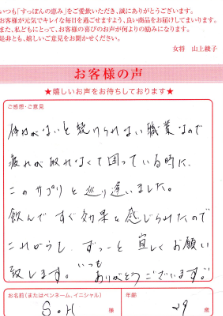 いつも「すっぽんの恵み」をご愛飲いただき、誠にありがとうございます。
お客様が元気でキレイな毎日を過ごせますよう、良い商品をお届けしてまいります。
また、私どもにとって、お客様の喜びのお声が何よりの励みになります。
是非とも、嬉しいご意見をお聞かせください。
女将 山上綾子
お客様の声
★嬉しいお声をお待ちしております★
ご感想・ご意見
体力がないと続けられない職業なので
疲れが取れなくて困っている時に、
このサプリと巡り逢いました。
飲んですぐ効果を感じられたので
これからも、ずっと宜しくお願い
致します。いつもありがとうございます。
お名前(またはペンネーム、イニシャル)
S.H 様
年齢
29 歳